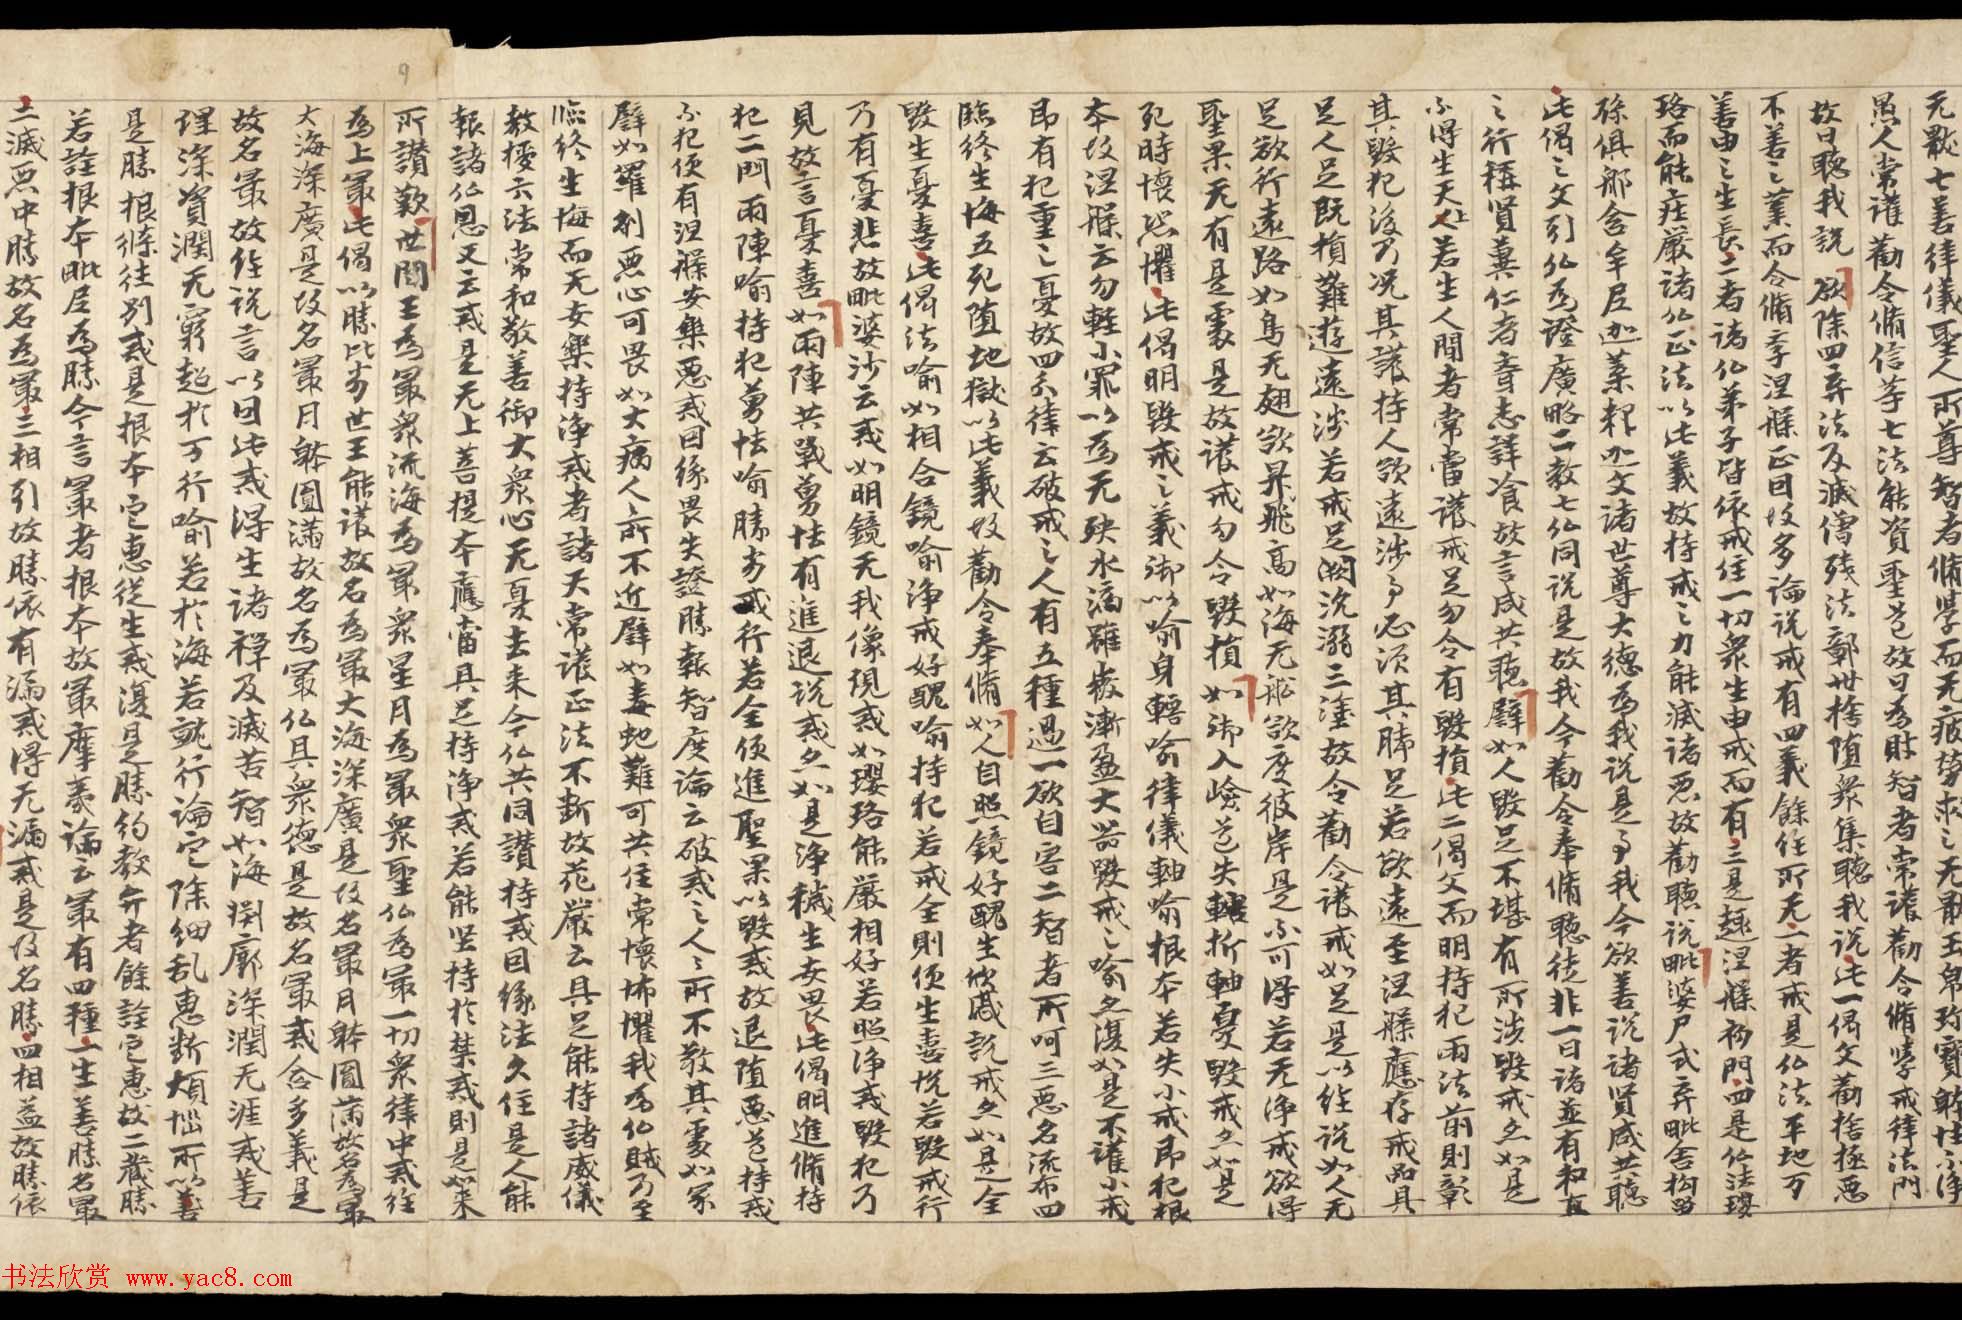 无厭七善律儀聖人所尊智者脩學而无疲勞求之无厭玉帛珎寳躰性不淨
愚人常護勸令脩信等七法能資聖道故曰為財智者常護勸令脩學戒律法門
故曰聽我說欲除四弃法及滅僧殘法鄣卅捨墮衆集聽我說此一偈文勸捨極惡
不善之業而令脩学涅槃正因故多論說戒有四義餘經所无一者戒是仏法平地万
善由之生長二者諸仏弟子皆依戒住一切衆生由戒而有三是趣涅槃初門四是仏法瓔
珞而能庄嚴諸仏正法以此義故持戒之力能滅諸惡故勸聽說毗婆尸式弃毗舍拘留
孫俱那含牟尼迦葉釋迦文諸世尊大德為我說是事我今欲善說諸賢咸共聽
此偈之文引仏為證廣略二教七仏同說是故我今勸令奉脩聽徒非一曰諸並有和直
之行稱賢兼仁者耆志詳飡故言咸共聽譬如人毀足不堪有所涉毀戒亦如是
不得生天上若生人間者常當護戒足勿令有毀損此二偈文而明持犯兩法前則彰
其毀犯後乃況其護持人欲遠涉事必須其脚足若欲遠至涅槃應存戒品具
足人足既損難遊遠涉若戒足闕沉溺三塗故令勸令護戒如足是以經說如人无
足欲行遠路如鳥无翅欲昇飛高如海无船欲度彼岸是不可得若无淨戒欲得
聖果无有是處是故護戒勿令毀損如御入嶮道失轄折軸憂毀戒亦如是
死時懷恐懼此偈明毀戒之義御以喻身轄喻律儀軸喻根本若失小戒即犯根
本故涅槃云勿輕小罪以為无殃水滴雖微漸盈大器毀戒之喻亦復如是不護小戒
即有犯重之憂故四分律云破戒之人有五種過一欲自害二智者所呵三惡名流布四
臨終生悔五死墮地獄以此義故勸令奉脩如人自照鏡好醜生欣慼說戒亦如是全
毀生憂喜此偈法喻如相合鏡喻淨戒好醜喻持犯若戒全則便生喜悅若毀戒行
乃有憂悲故毗婆沙云戒如明鏡无我像現戒如瓔珞能嚴相好若照淨戒毀犯乃
見故言憂喜如兩陣共戰勇怯有進退說戒亦如是淨穢生安畏此偈明進脩持
犯二門兩陣喻持犯勇怯喻勝劣戒行若全便進聖果以毀戒故退墮惡道持戒
不犯便有涅槃安樂惡戒因緣畏失證勝報智度論云破戒之人人所不敬其處如冢
譬如羅剎惡心可畏如大病人所不近譬如毒虵難可共住常懷怖懼我為仏賊乃至
臨終生悔而无安樂持淨戒者諸天常護正法不斷故花嚴云具足能持諸威儀
教攝六法常和敬善御大衆心无憂去来今仏共同讃持戒因緣法久住是人能
報諸仏恩又云戒是无上菩提本應當具足持淨戒若能坚持於禁戒則是如来
所讃歎世間王為最衆流海為最衆星月為最衆聖仏為最一切衆律中戒經
為上最此偈以勝比劣世王能護故名為最大海深廣是故名最月躰圓滿故名為最
大海深廣是故名最月躰圓滿故名為最仏具衆德是故名最戒含多義是
故名最故經說言以因此戒得生諸禪及滅苦智如海渕廓深潤无涯戒善
理深資潤无窮超於万行喻若於海若就行論定除細乱惠断煩惱所以善
是勝根條往別戒是根本定惠從生戒復是勝約教弁者餘詮定惠故二藏勝
若詮根本毗尼為勝今言最者根本故最摩義論云最有四種一生善勝名最
二滅惡中勝故名為最三相引故勝依有漏戒得无漏戒是故名勝四相益故勝依
9
书法欣赏 www.yac8.com